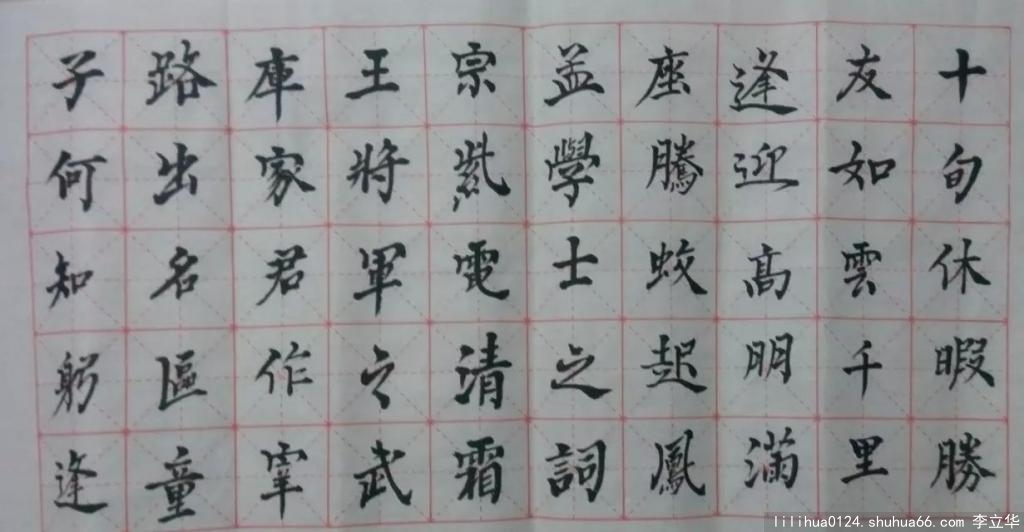 十旬休暇勝
友如雲千里
逢迎高明滿
座騰蛟起鳳
孟學士之詞
宗紫電清霜
王將軍之武
庫家君作宰
路出名區童
子何知躬逢
lilihua0124.shuhua66.com 李立华